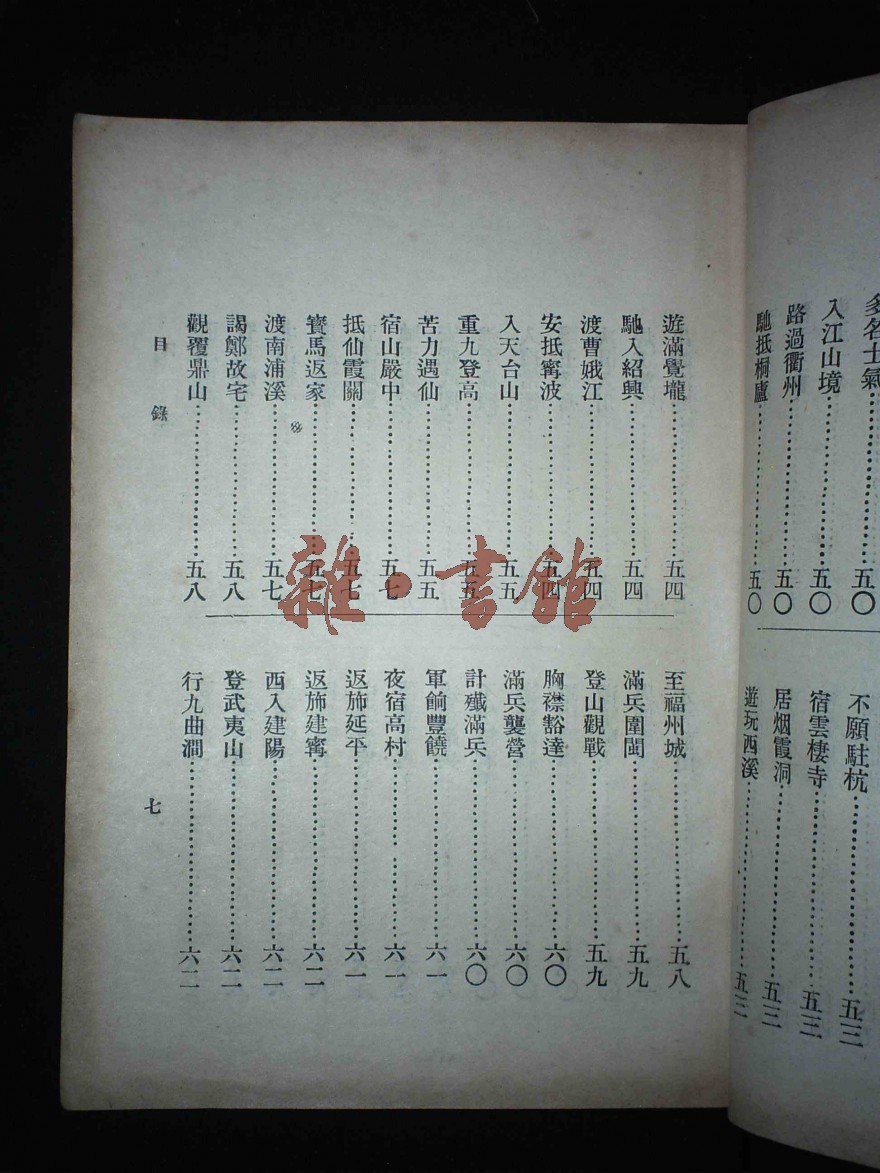 多名士氣……五〇
入江山境……五〇
路過衢州……五〇
馳抵桐廬……五〇
不願駐杭……五三
宿雲棲寺……五三
居烟霞洞……五三
遊玩西溪……五三
遊滿覺壠……五四
馳入紹興……五四
渡曹娥江……五四
安抵寗波……五四
入天台山……五五
重九登高……五五
苦力遇仙……五五
宿山嚴中……五七
抵仙霞關……五七
簣馬返家……五七
渡南浦溪……五七
謁鄭故宅……五八
觀覆鼎山……五八
至福州城……五八
滿兵圍閩……五九
登山觀戰……五九
胸襟豁達……六〇
滿兵襲營……六〇
計殲滿兵……六〇
軍餉豐饒……六一
夜宿高村……六一
返斾延平……六一
返斾建寗……六二
西入建陽……六二
登武夷山……六二
行九曲澗……六二
目錄
七
雜·書館